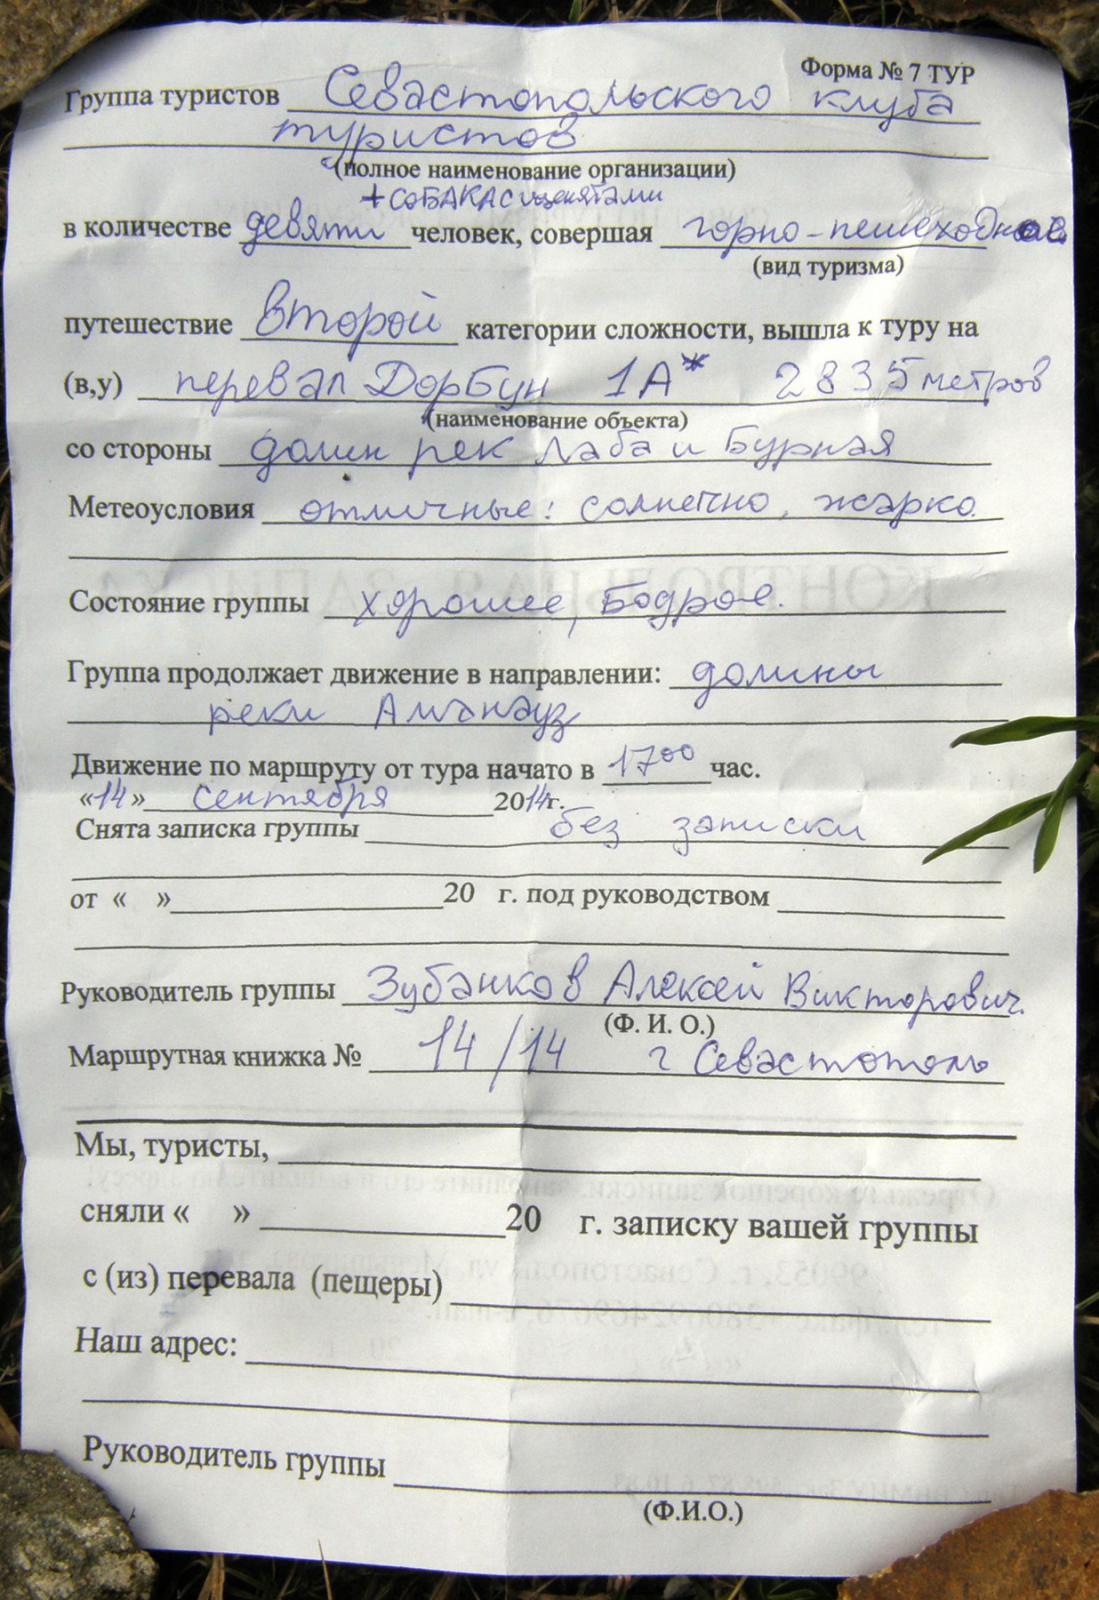 Форма № 7 ТУР
Группа туристов Севастопольского клуба
туристов
(полное наименование организации)
+ СОБАКА с щенятами
в количестве девяти человек, совершая горно-пешеходное
(вид туризма)
путешествие второй категории сложности, вышла к туру на
(в,у) перевал Дорбун 1А* 2835 метров
(наименование объекта)
со стороны долин рек Лаба и Бурная
Метеоусловия отличные: солнечно, жарко.
Состояние группы хорошее, бодрое.
Группа продолжает движение в направлении: долины
реки Аманауз
Движение по маршруту от тура начато в 17 00 час.
«14» сентября 2014г.
Снята записка группы без записки
от « » 20 г. под руководством
Руководитель группы Зубанков Алексей Викторович.
(Ф. И. О.)
Маршрутная книжка № 14/14 г Севастополь
Мы, туристы,
сняли « » 20 г. записку вашей группы
с (из) перевала (пещеры)
Наш адрес:
Руководитель группы
(Ф.И.О.)